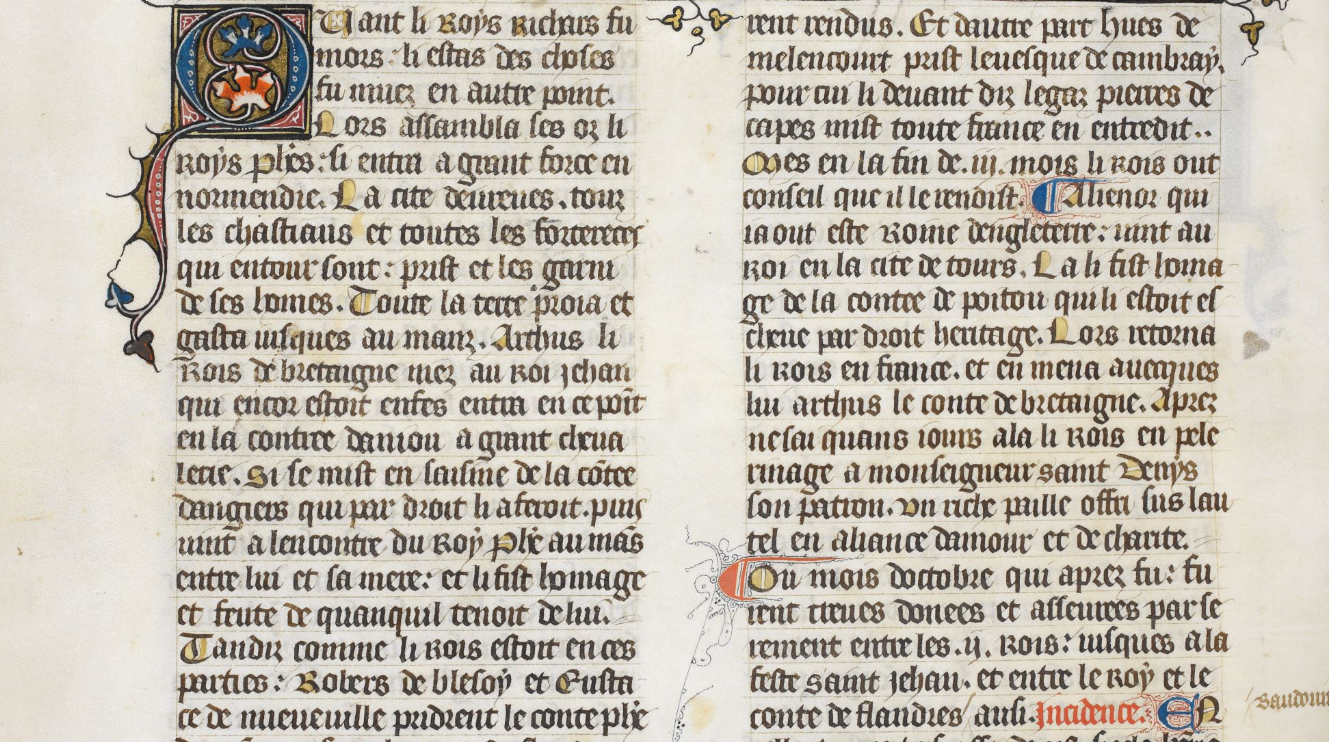 Quant li Roys Richars fu
mors : li estas des choses
fu muez en autre point.
Lors assambla ses oz li
Roys phẽs : si entra a grant force en
normendie. La cite deureues . touz
les chastiaus et toutes les forterecez
qui entour sont : prist et les garni
de ses homes. Toute la terre proia et
gasta iusques au manz. Arthus li
Rois de bretaigne niez au Roi jehan
qui encor estoit enfes entra en ce poĩt
en la contree daniou a grant cheua
lerie. Si se mist en saisine de la cõtee
dangiers qui par droit li aferoit. puis
uint a lencontre du Roy phẽ au mãs
entre lui et sa mere : et li fist homage
et feute de quanquil tenoit de lui.
Tandiz comme li Rois estoit en ces
parties : Robers de blesoy et Eusta
ce de nueueuille pridrent le conte phẽ
rent rendus. Et dautre part hues de
melencourt prist leuesque de cambray.
pour cui li deuant diz legaz pierres de
capes mist toute france en entredit..
Mes en la fin de .iii. mois li Rois out
conseil que il le rendist. Alienor qui
ia out este Roine dengleterre : uint au
Roi en la cite de tours. La li fist homa
ge de la contee de poitou qui li estoit es
cheue par droit heritage. Lors retorna
li Rois en france. et en mena auecques
lui arthus le conte de bretaigne. Aprez
ne sai quans iours ala li Rois en pele
rinage a monseigneur saint Denys
son patron. vn riche paille offri sus lau
tel en aliance damour et de charite.
Ou mois doctobre qui aprez fu : fu
rent trieues donees et asseurees par se
rement entre les .ij. Rois : iusques a la
feste saint jehan. et entre le roy et le
conte de flandres ausi. Incidence. EN
Baudouin